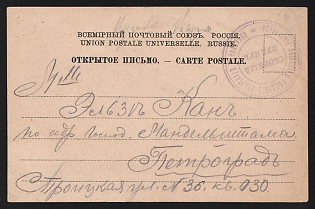 ВСЕМІРНЫЙ ПОЧТОВЫЙ СОЮЗЪ. РОССІЯ.
UNION POSTALE UNIVERSELLE. RUSSIE.
ОТКРЫТОЕ ПИСЬМО. — CARTE POSTALE.
Эльзъ Канъ
по адр. Мандельштама
Петроградъ
Троицкая ул. № 36. кв. 030.